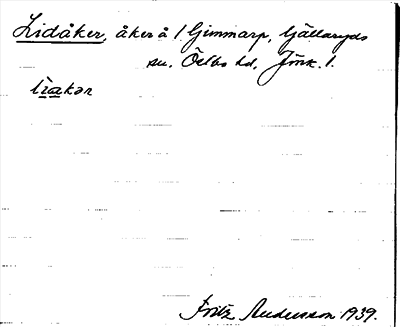 Lidåker, åker å 1 Gimmarp, Gällaryds
sn. Östbo hd, Jönk. l.
Fritz Andersson 1939.